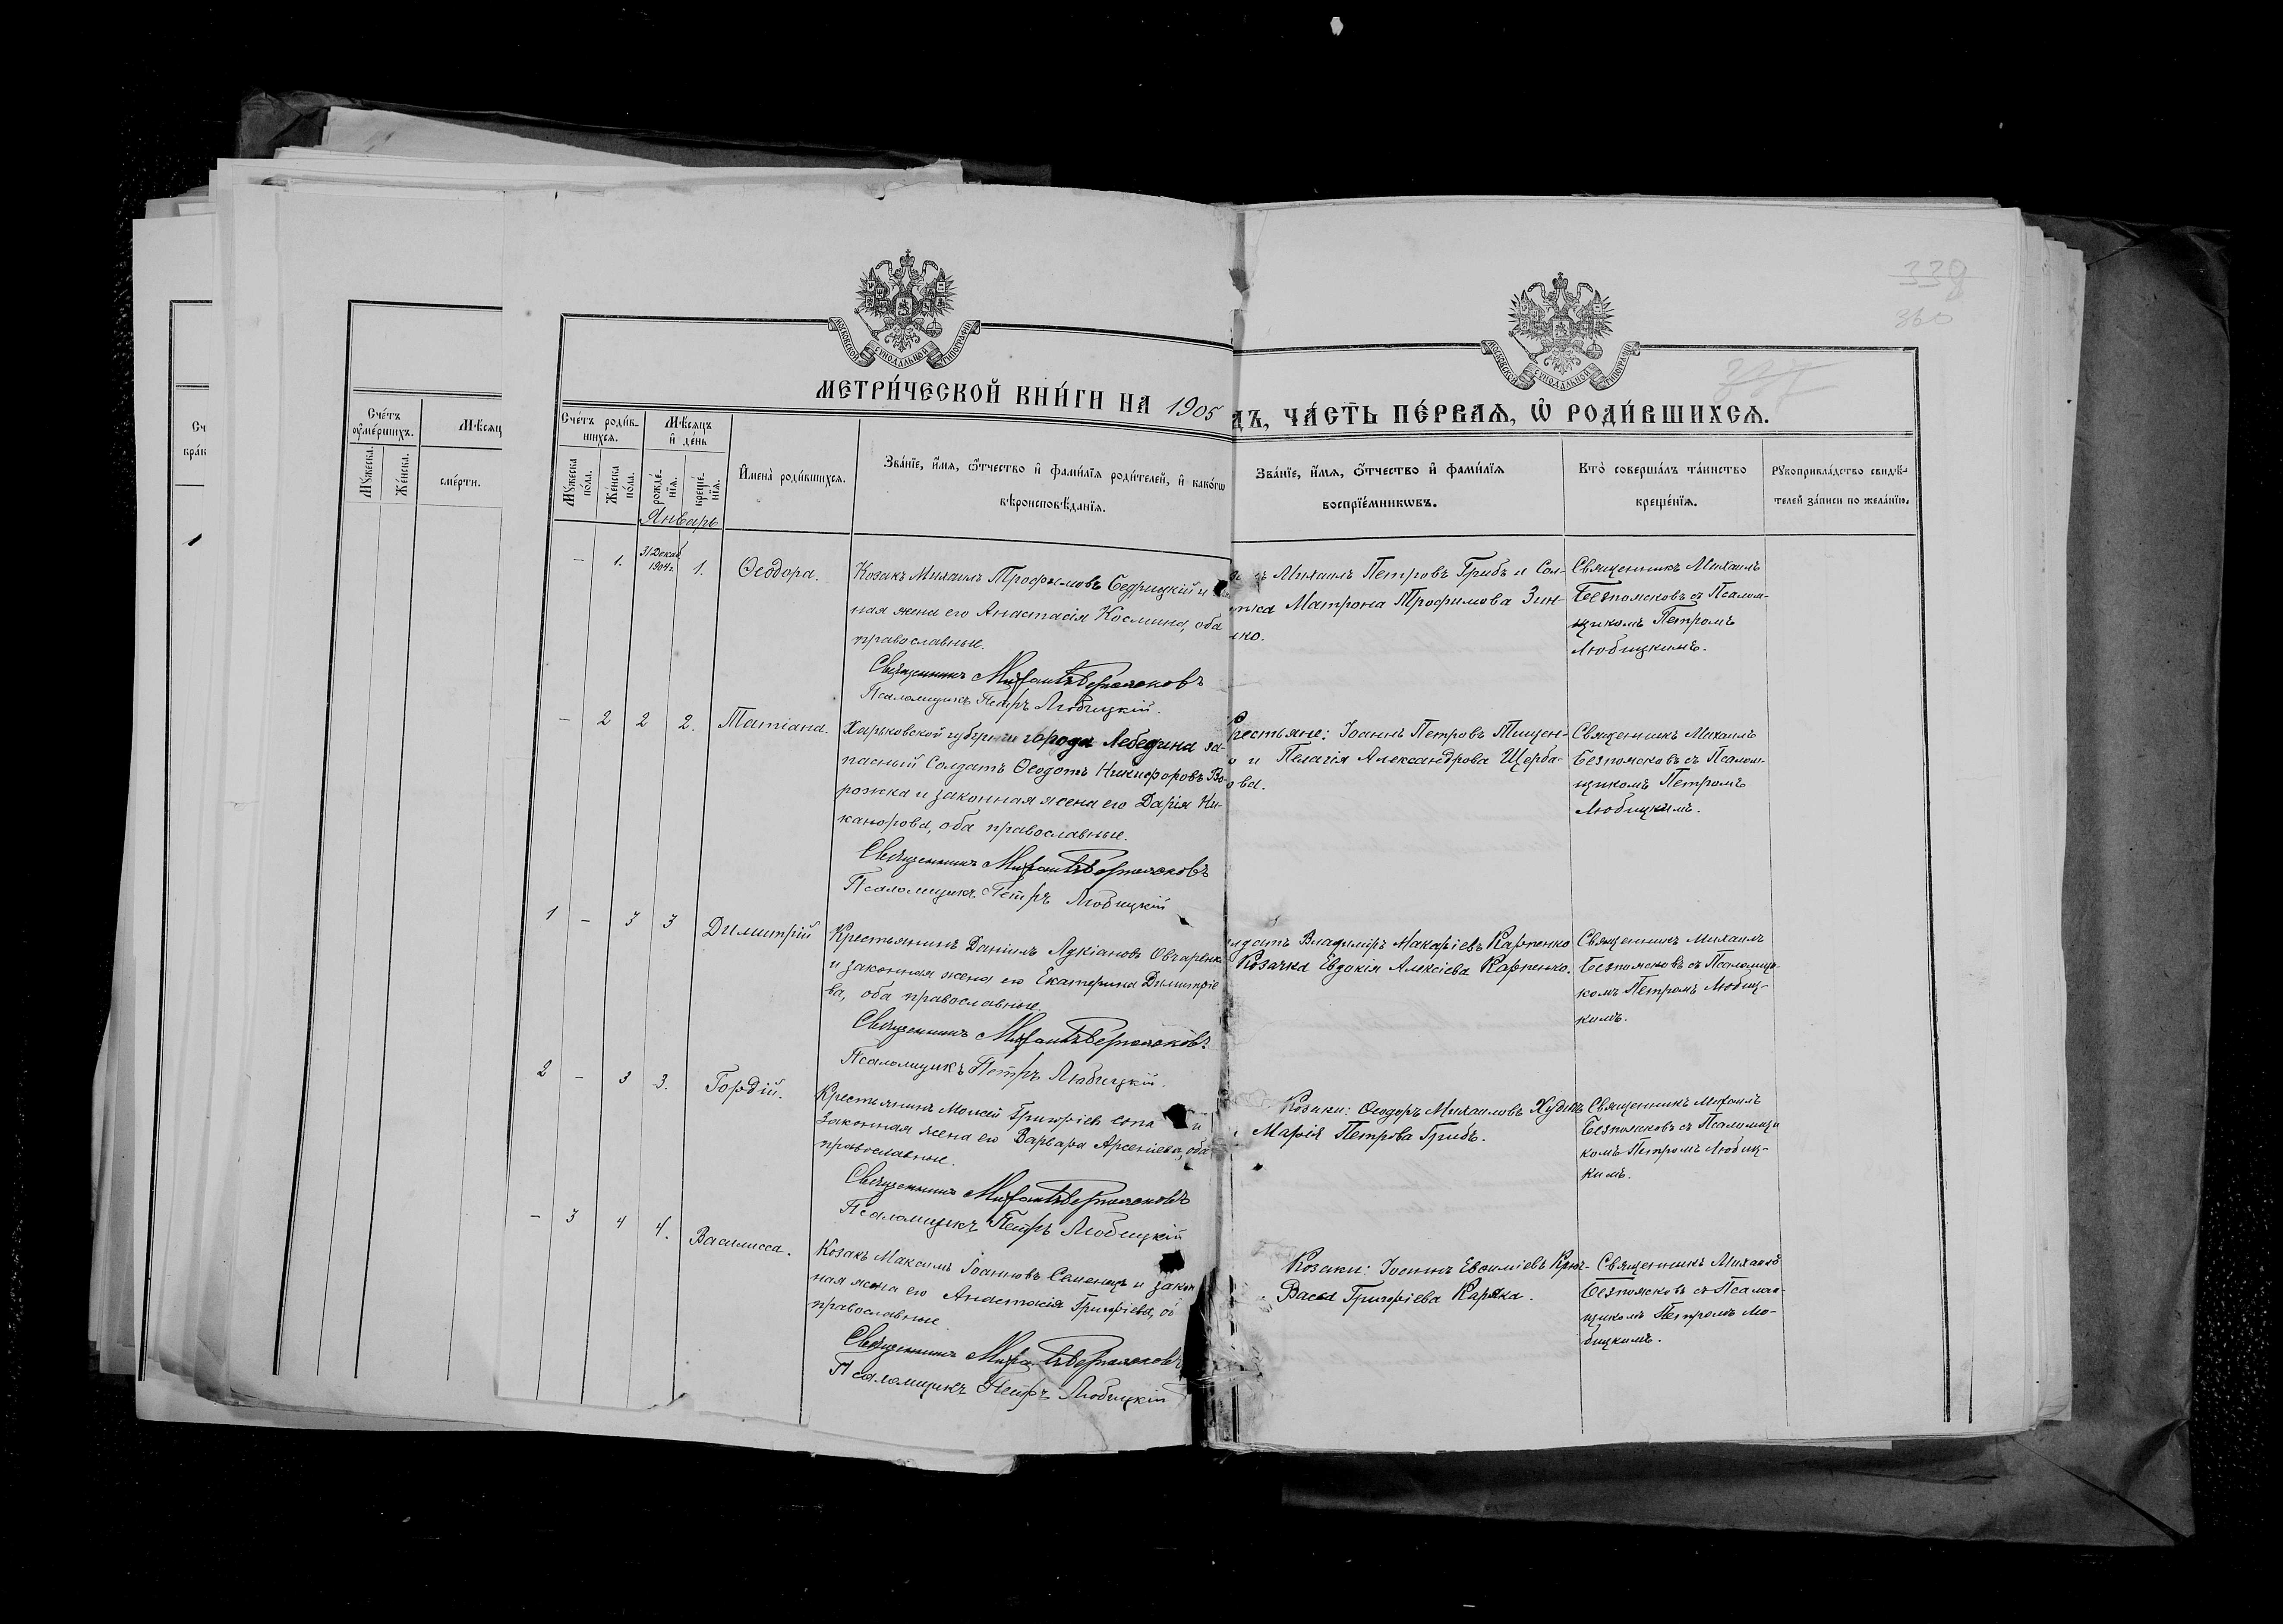 338
360
МОСКОВСКОЙ СУНОДАЛЬНОЙ ТИПОГРАФІИ
МОСКОВСКОЙ СУНОДАЛЬНОЙ ТИПОГРАФІИ
МЕТРИ́ЧЕСКОЙ КНИ́ГИ НА 1905
ДЪ, ЧА́СТЬ ПЕ́РВАЯ, Ѽ РОДИ́ВШИХСЯ.
Сч
бра́к
Сче́тъ
ᲂу҆ме́ршихъ.
Мѣсяц
Мꙋжеска.
Женска.
сме́рти.
Сче́тъ роди́в-
шихся.
Мꙋжеска
по́ла.
Же́нска
по́ла.
Мѣсяцъ
и҆ де́нь
рожде́-
нїя.
креще́-
нїя.
Январь
И҆мена̀ роди́вшихся.
Зва́нїе, и҆́мя, ѻ҆́тчество и҆ фами́лїя роди́телей, и҆ како́гѡ
вѣроисповѣ́данїя.
Зва́нїе, и҆́мя, ѻ҆́тчество и҆ фами́лїя
воспрїе́мникѡвъ.
Кто̀ соверша́лъ та́инство
креще́нїя.
Рꙋкоприкла́дство свидѣ́-
телей за́писи по жела́нїю.
– 1. 31 Декаб 1904 г. 1. Ѳеодора.
Козакъ Михаилъ Трофимовъ Седрицкій и
ная жена его Анастасія Космина, оба
православные.
Священникъ Михаилъ Безпоясковъ
Псаломщикъ Петръ Любицкій.
ъ Михаилъ Петровъ Грибъ и Сол-
тка Матрона Трофимова Зин-
ко.
Священникъ Михаилъ
Безпоясковъ съ Псалом-
щикомъ Петромъ
Любицкимъ.
– 2 2 2. Татіана.
Харьковской губерніи города Лебедина за-
пасный Солдатъ Ѳеодотъ Никифоровъ Во-
рожка и законная жена его Дарія Ни-
канорова, оба православные.
Священникъ Михаилъ Безпоясковъ
Псаломщикъ Петръ Любицкій
рестьяне: Іоаннъ Петровъ Тищен-
о и Пелагія Александрова Щерба-
ова.
Священникъ Михаилъ
Безпоясковъ съ Псалом-
щикомъ Петромъ
Любицкимъ.
1 – 3 3 Димитрій
Крестьянинъ Даніилъ Лукіановъ Овчаренко
и законная жена его Екатерина Димитріе
ва, оба православные.
Священникъ Михаилъ Безпоясковъ
Псаломщикъ Петръ Любицкій.
лдатъ Владиміръ Макаріевъ Карпенко
Козачка Евдокія Алексіева Карпенко.
Священникъ Михаилъ
Безпоясковъ съ Псаломщи-
комъ Петромъ Любиц-
кимъ.
2 – 3 3. Гордій.
Крестьянинъ Моисей Григоріев и
законная жена его Варвара Арсеніева, оба
православные.
Священникъ Михаилъ Безпоясковъ
Псаломщикъ Петръ Любицкій
Козаки: Ѳеодоръ Михаиловъ Худикъ
Марія Петрова Грибъ.
Священникъ Михаилъ
Безпоясковъ съ Псаломщи
комъ Петромъ Любиц-
кимъ.
– 3 4 4. Василисса.
Козакъ Максимъ Іоанновъ Семенецъ и закон
ная жена его Анастасія Григоріева, об
православные
Священникъ Михаилъ Безпоясковъ
Псаломщикъ Петръ Любицкій
Козаки: Іоаннъ Евѳиміевъ Крюч-
Васса Григоріева Каряка.
Священникъ Михаилъ
Безпоясковъ съ Псалом-
щикомъ Петромъ Лю-
бицкимъ.